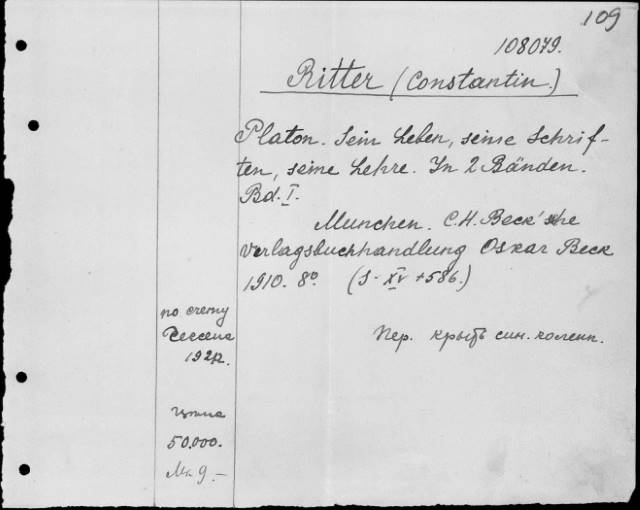 109
108079.
Ritter (Constantin.)
Platon. Sein Leben, seine Schrif-
ten, seine Lehre. In 2 Bänden.
Bd. I.
Munchen. C.H. Beck'sche
Verlagsbuchhandlung Oskar Beck
1910. 8º. (S. XV + 586.)
по счету
192
Пер. крыть син. коленк.
цена
50.000.
Mk 9.-